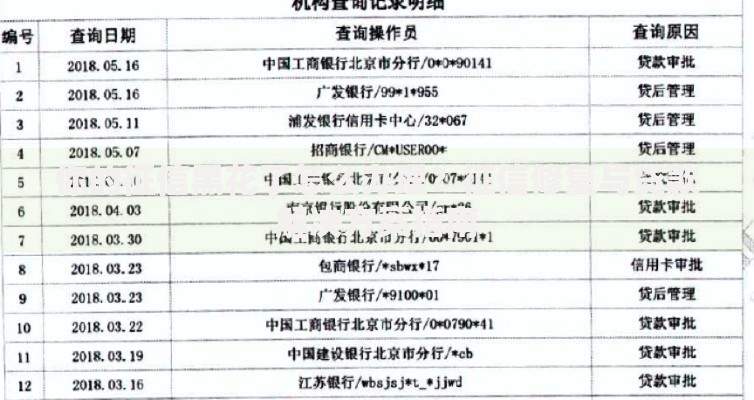 机构查询记录明细
编号 查询日期 查询操作员 查询原因
1 2018.05.16 中国工商银行北京市分行/0*0*90141 贷款审批
2 2018.05.16 广发银行/99*1*955 贷后管理
3 2018.05.11 浦发银行信用卡中心/32*067 贷后管理
4 2018.05.07 招商银行/CM*USER00* 贷后管理
5 中国工商银行北京市分行 贷款审批
6 2018.04.03 南京银行股份有限公司 贷款审批
7 2018.03.30 中国工商银行北京市分行 贷款审批
8 2018.03.23 包商银行/*sbwx*17 信用卡审批
9 2018.03.23 广发银行/*9100*01 贷后管理
10 2018.03.22 中国工商银行北京市分行/0*0790*41 贷款审批
11 2018.03.19 中国建设银行北京市分行/*cb 贷款审批
12 2018.03.16 江苏银行/wbsjsj*t_*jjwd 贷款审批